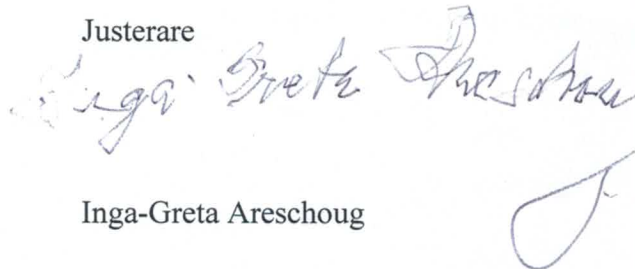 Justerare
Inga Greta Areschoug
Inga-Greta Areschoug